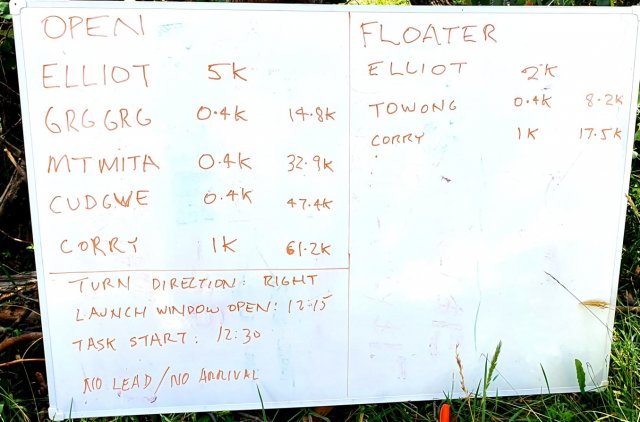 OPEN
ELLIOT 5K
GRGGRG 0.4K 14.8K
MTMITA 0.4K 32.9K
CUDGWE 0.4K 47.4K
CORRY 1K 61.2K
TURN DIRECTION: RIGHT
LAUNCH WINDOW OPEN: 12:15
TASK START: 12:30
NO LEAD/NO ARRIVAL
FLOATER
ELLIOT 2K
TOWONG 0.4K 8.2K
CORRY 1K 17.5K